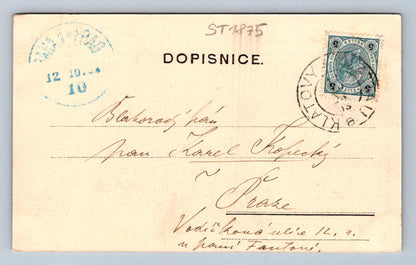 ST1875
PRAHA PRAG
12 10
10
DOPISNICE.
5 5
KLATOVY
Blahorodý pán
pan Karel Kopecký
v Praze
Vodičkova ulice 12.
u paní Fantové.